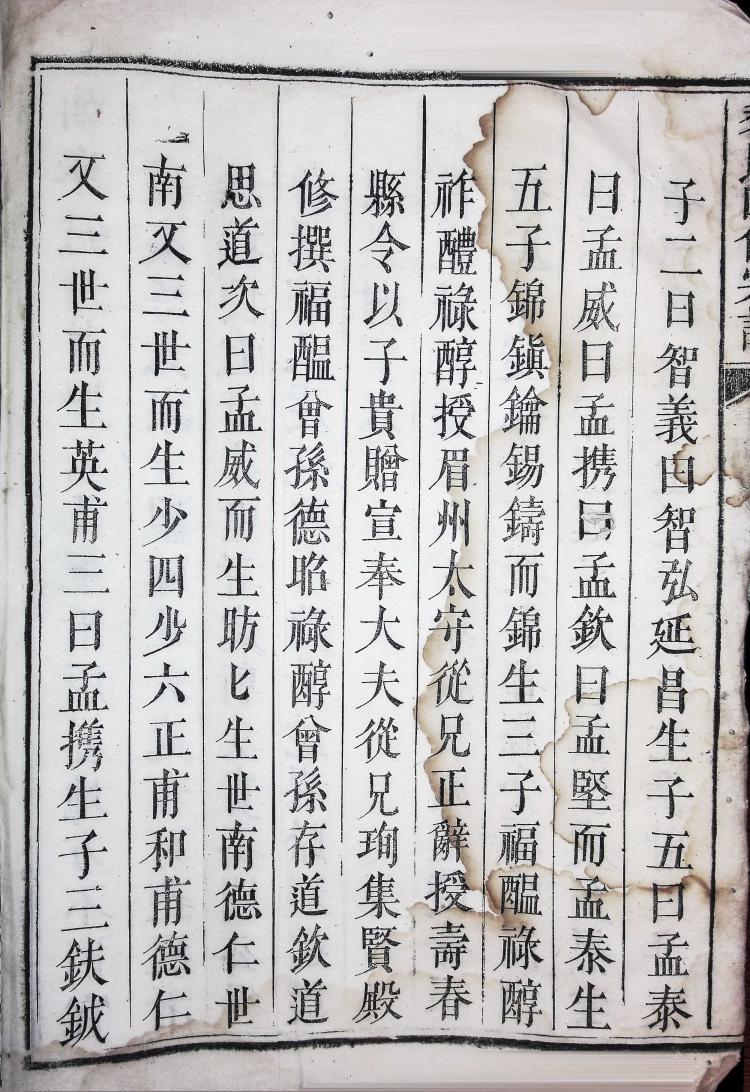 子二曰智義曰智弘延昌生子五曰孟泰
曰孟威曰孟携曰孟欽曰孟堅而孟泰生
五子錦鎭鑰錫鑄而錦生三子福醖祿醇
祚醴祿醇授眉州太守從兄正辭授壽春
縣令以子貴贈宣奉大夫從兄珣集賢殿
修撰福醖曾孫德昭祿醇曾孫存道欽道
思道次曰孟威而生昉匕生世南德仁世
南又三世而生少四少六正甫和甫德仁
又三世而生英甫三曰孟携生子三鈇鉞